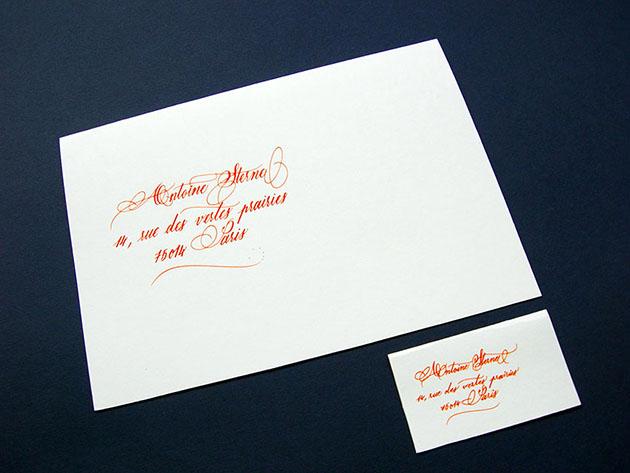 Antoine Sterne
14, rue des vertes prairies
75014 Paris
Antoine Sterne
14, rue des vertes prairies
75014 Paris